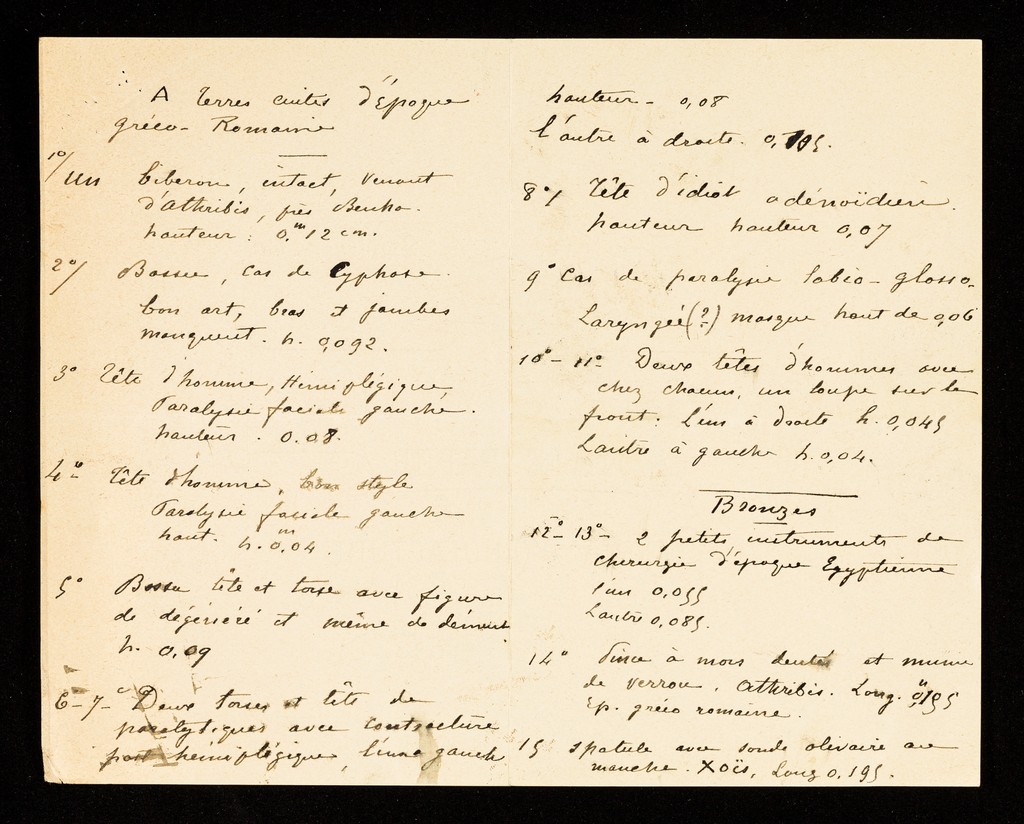 A Terres cuites d'Époque
gréco-Romaine
1o/ Un biberon, intact, venant
d'Athribis, près Benha.
hauteur : 0,m12 cm.
2o/ Bossue, cas de Cyphose.
bon art, bras et jambes
manquent. h. 0,092.
3o Tête d'homme, Hémiplégique
Paralysie faciale gauche.
hauteur. 0.08.
4o Tête d'homme, bon style
Paralysie faciale gauche
haut. h. 0,m04.
5o Bossu tête et torse avec figure
de dégénéré et même de dément
h. 0,09
6-7-o Deux torses et tête de
paralytiques avec contracture
post hemiplégique, l'une gauche
hauteur - 0,08
l'autre à droite. 0,105.
8o/ Tête d'idiot adénoïdien.
hauteur hauteur 0,07
9o Cas de paralysie labio-glosso-
Laryngée(?) masque haut de 0,06
10o- 11o Deux têtes d'hommes avec
chez chacun, un loupe sur le
front: l'un à droite h. 0,045
L'autre à gauche h. 0,04.
Bronzes
12o- 13o- 2 petits instruments de
chirurgie d'époque Egyptienne
l'un 0,055
L'autre 0,085.
14o Pince à mors dentés et munie
de verrou. Athribis. Long. 0,m155
Ep. gréco romaine.
15 Spatule avec sonde olivaire au
manche. Xoïs, Long 0.195.